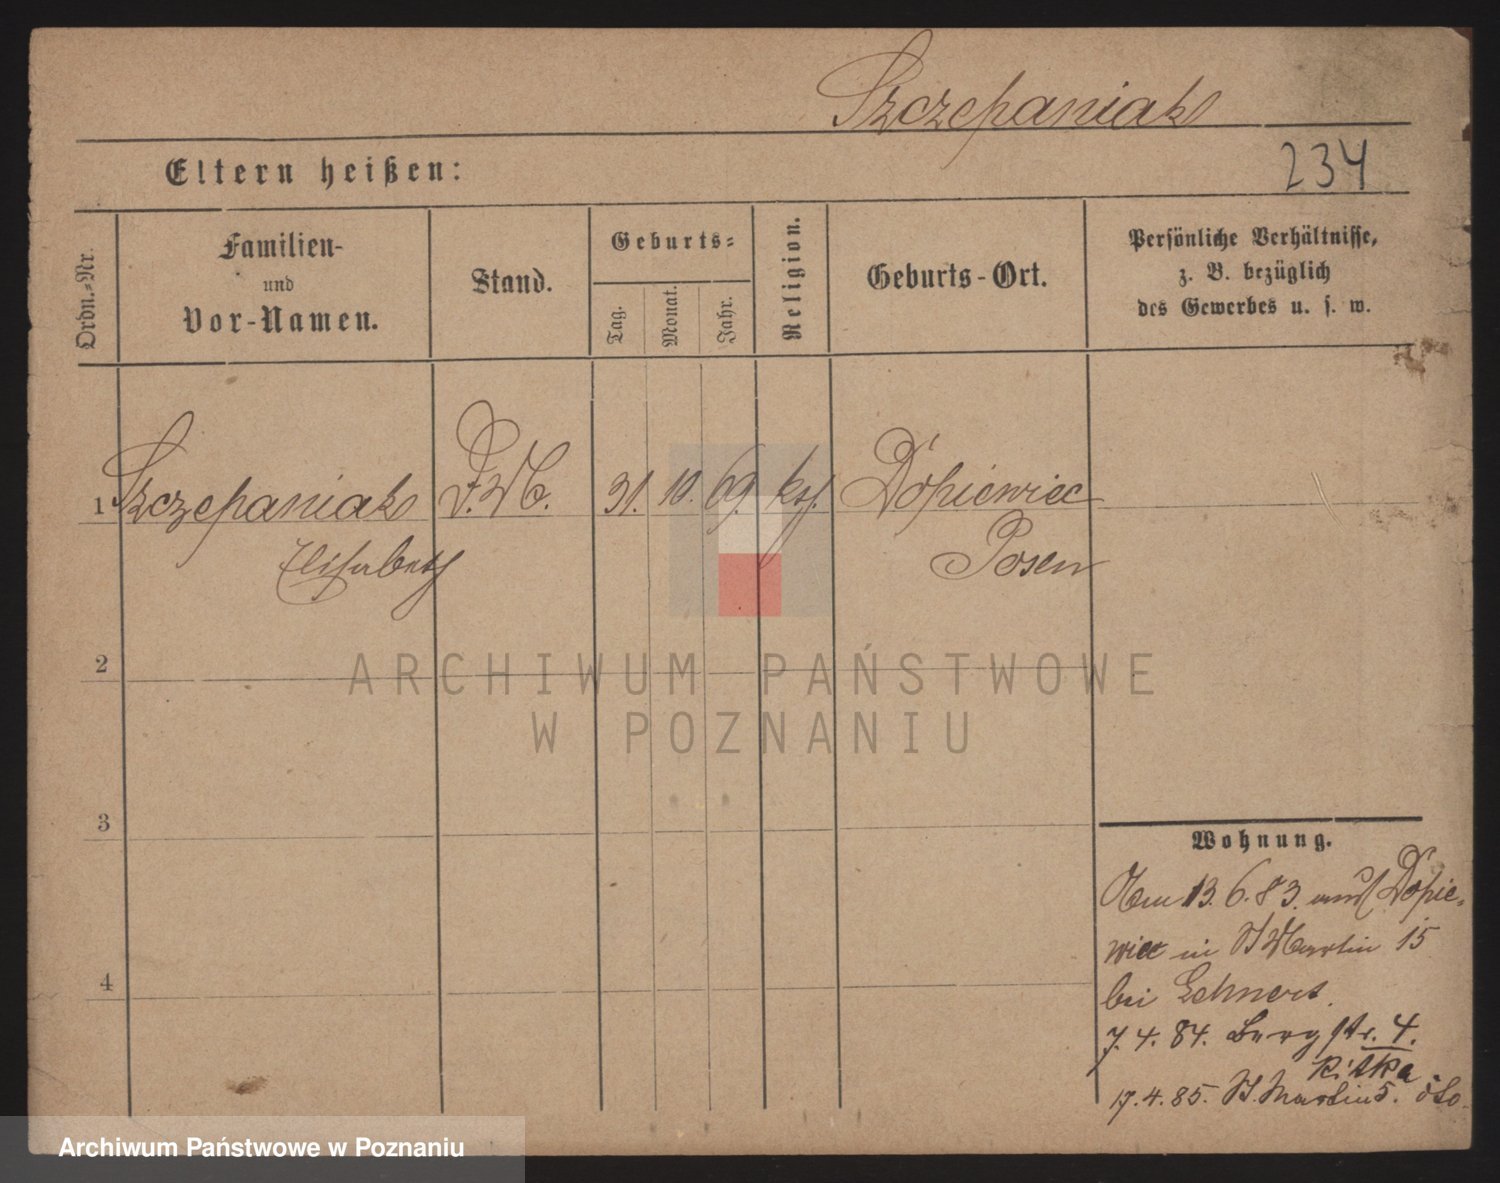 Szczepaniak
234
Eltern heißen:
Ordn.-Nr.
Familien-
und
Vor-Namen.
Stand.
Geburts-
Tag.
Monat.
Jahr.
Religion.
Geburts-Ort.
Persönliche Verhältnisse,
z. B. bezüglich
des Gewerbes u. s. w.
1 Szczepaniak 31. 10. 69. kth. Dopiewiec
Elisabeth Posen
2
3
4
Wohnung.
Am 13. 6. 83. aus Dopie-
wiec in St Martin 15
bei
7. 4. 84. Berg str. 4.
Ritka
17. 4. 85. St. Martin 5.
ARCHIWUM PAŃSTWOWE
W POZNANIU
Archiwum Państwowe w Poznaniu